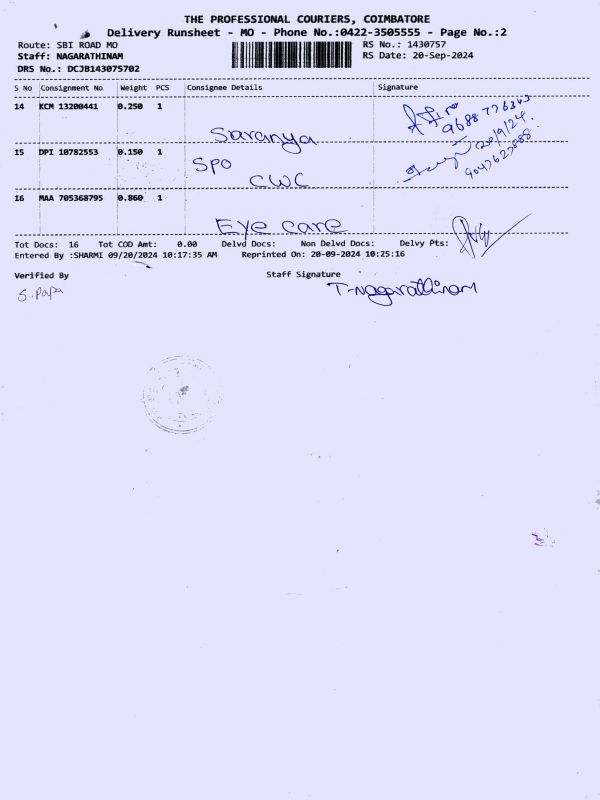 THE PROFESSIONAL COURIERS, COIMBATORE
Delivery Runsheet - MO - Phone No.:0422-3505555 - Page No.:2
Route: SBI ROAD MO
RS No.: 1430757
Staff: NAGARATHINAM
RS Date: 20-Sep-2024
DRS No.: DCJB143075702
S No Consignment No Weight PCS Consignee Details Signature
14 KCM 13200441 0.250 1
Saranya
9688776343
15 DPI 10782553 0.150 1
SPO
CWC
20/9/24
9047625888
16 MAA 705368795 0.860 1
Eye care
Tot Docs: 16 Tot COD Amt: 0.00 Delvd Docs: Non Delvd Docs: Delvy Pts:
Entered By :SHARMI 09/20/2024 10:17:35 AM Reprinted On: 20-09-2024 10:25:16
Verified By
Staff Signature
S. Papa
T-Nagarathinam